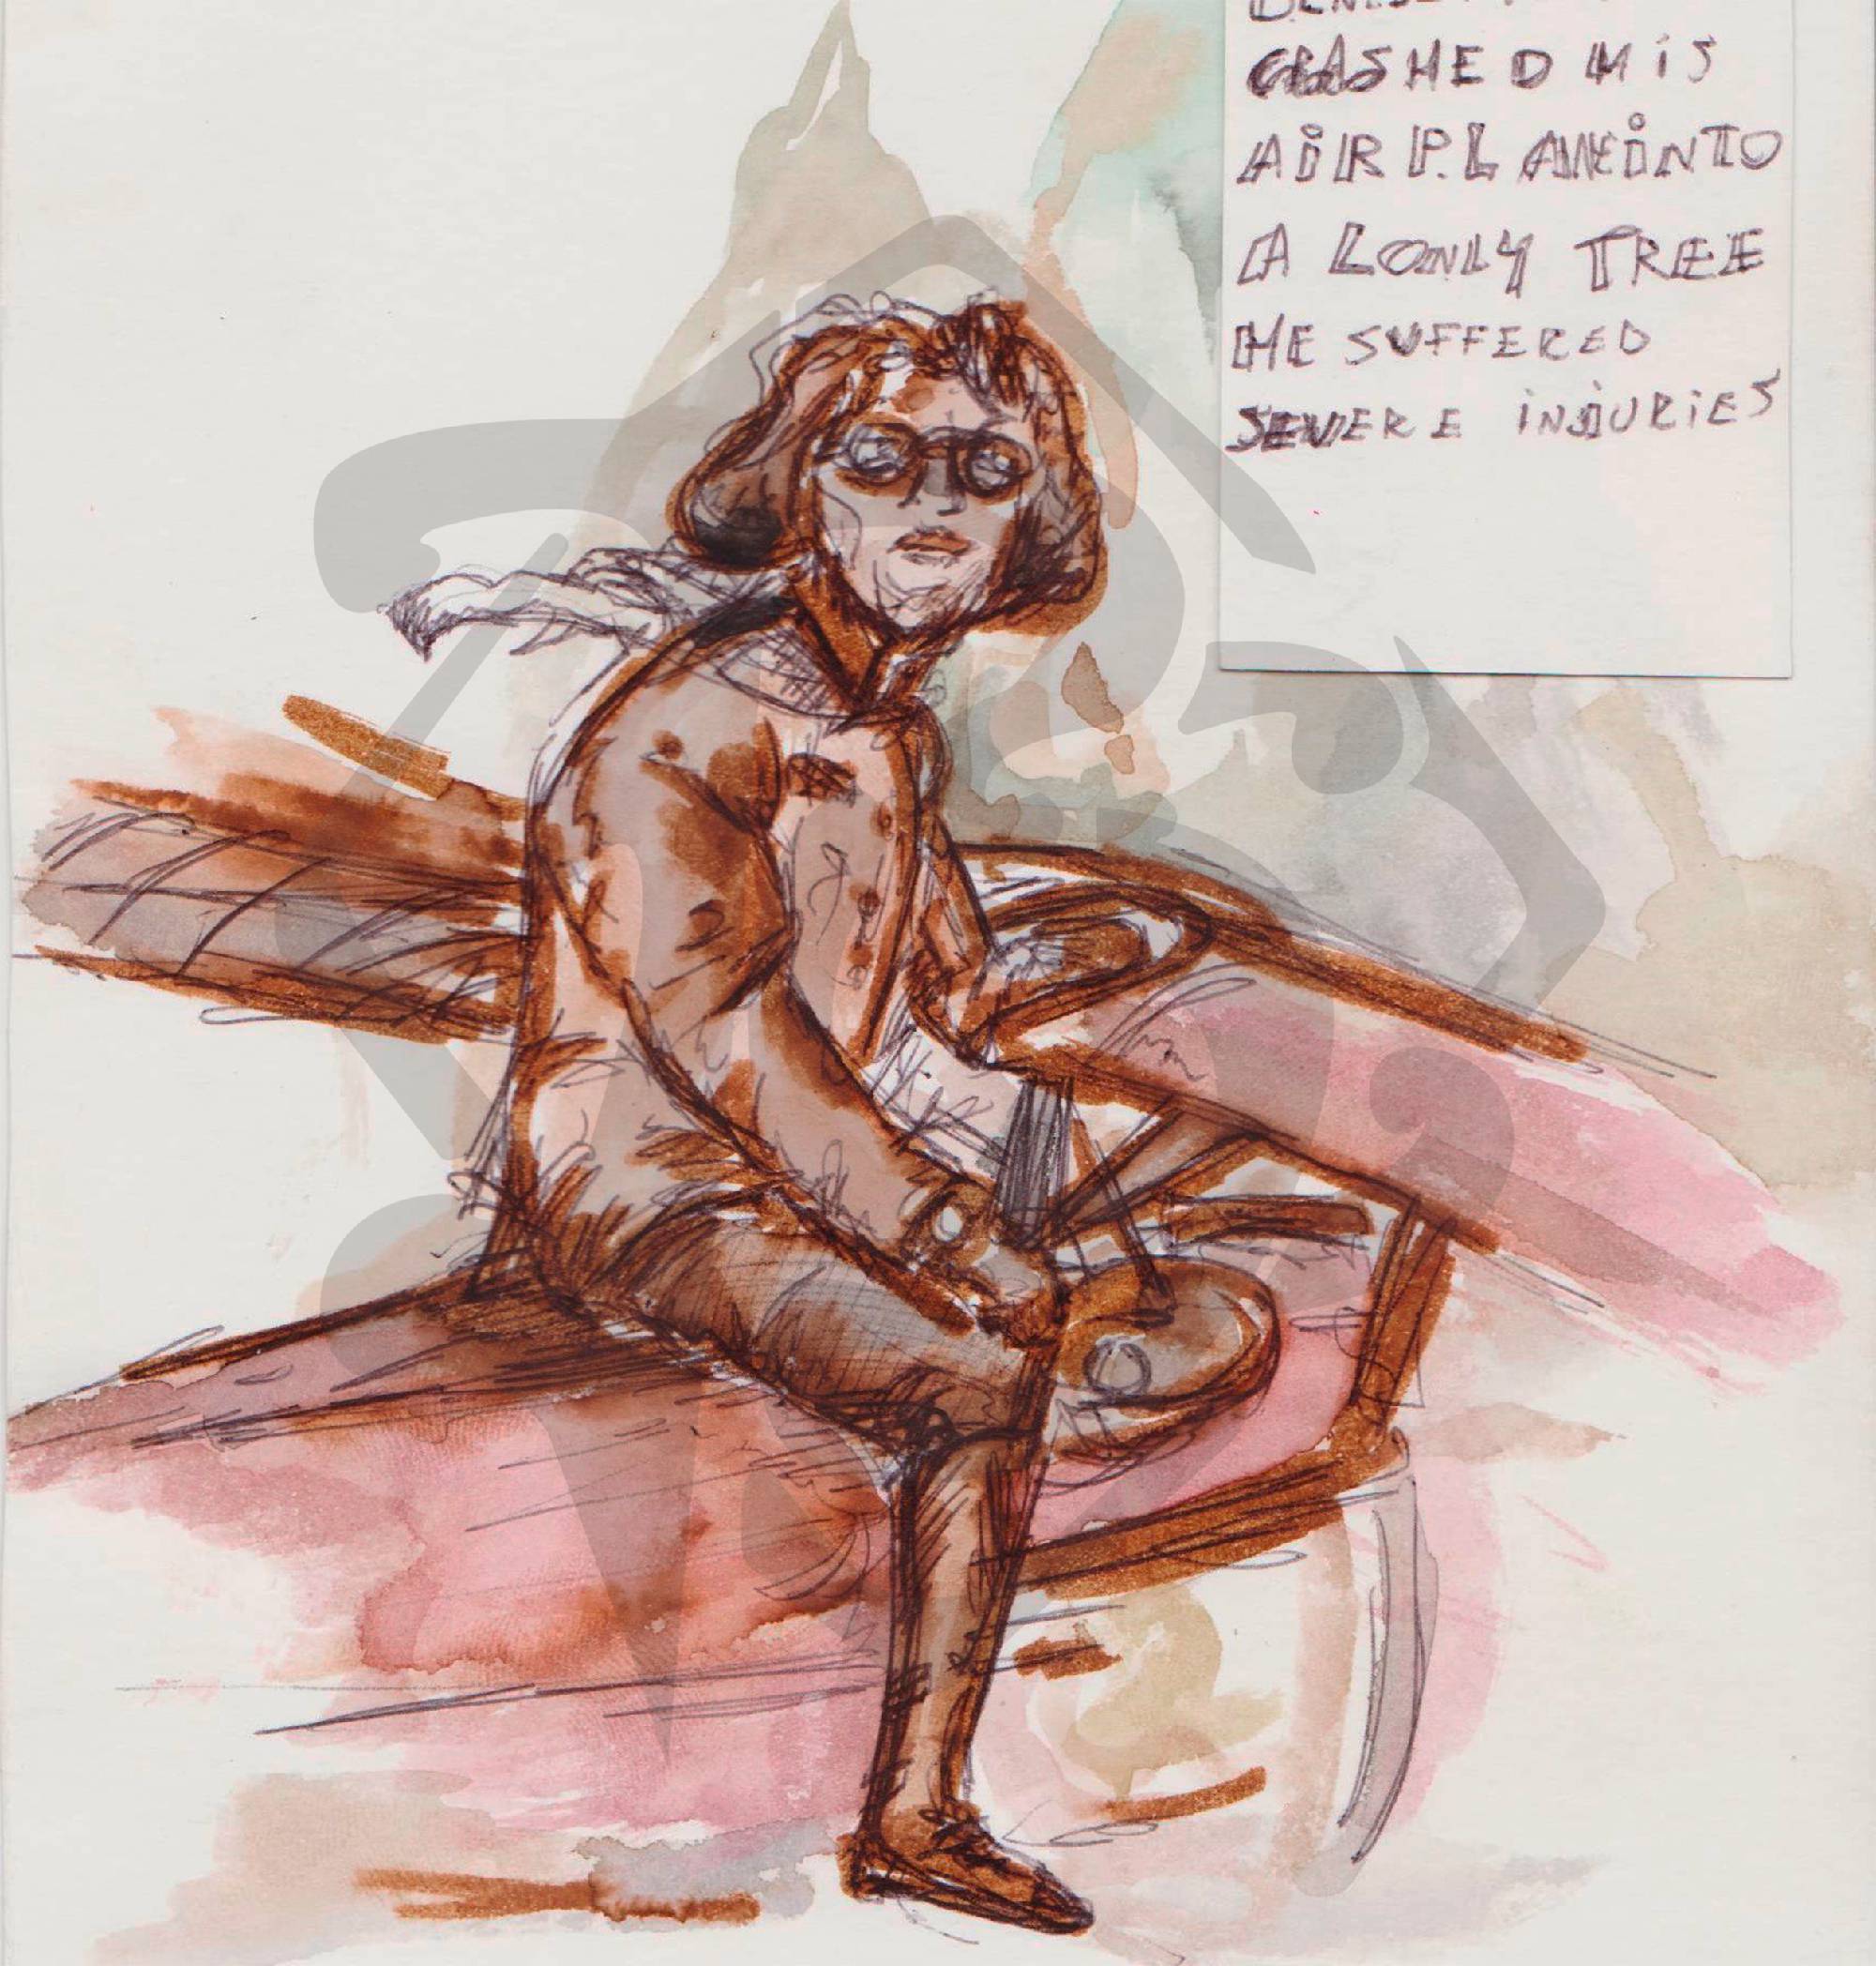 CRASHED HIS
AIRPLANE INTO
A LONLY TREE
HE SUFFERED
SEVERE INJURIES